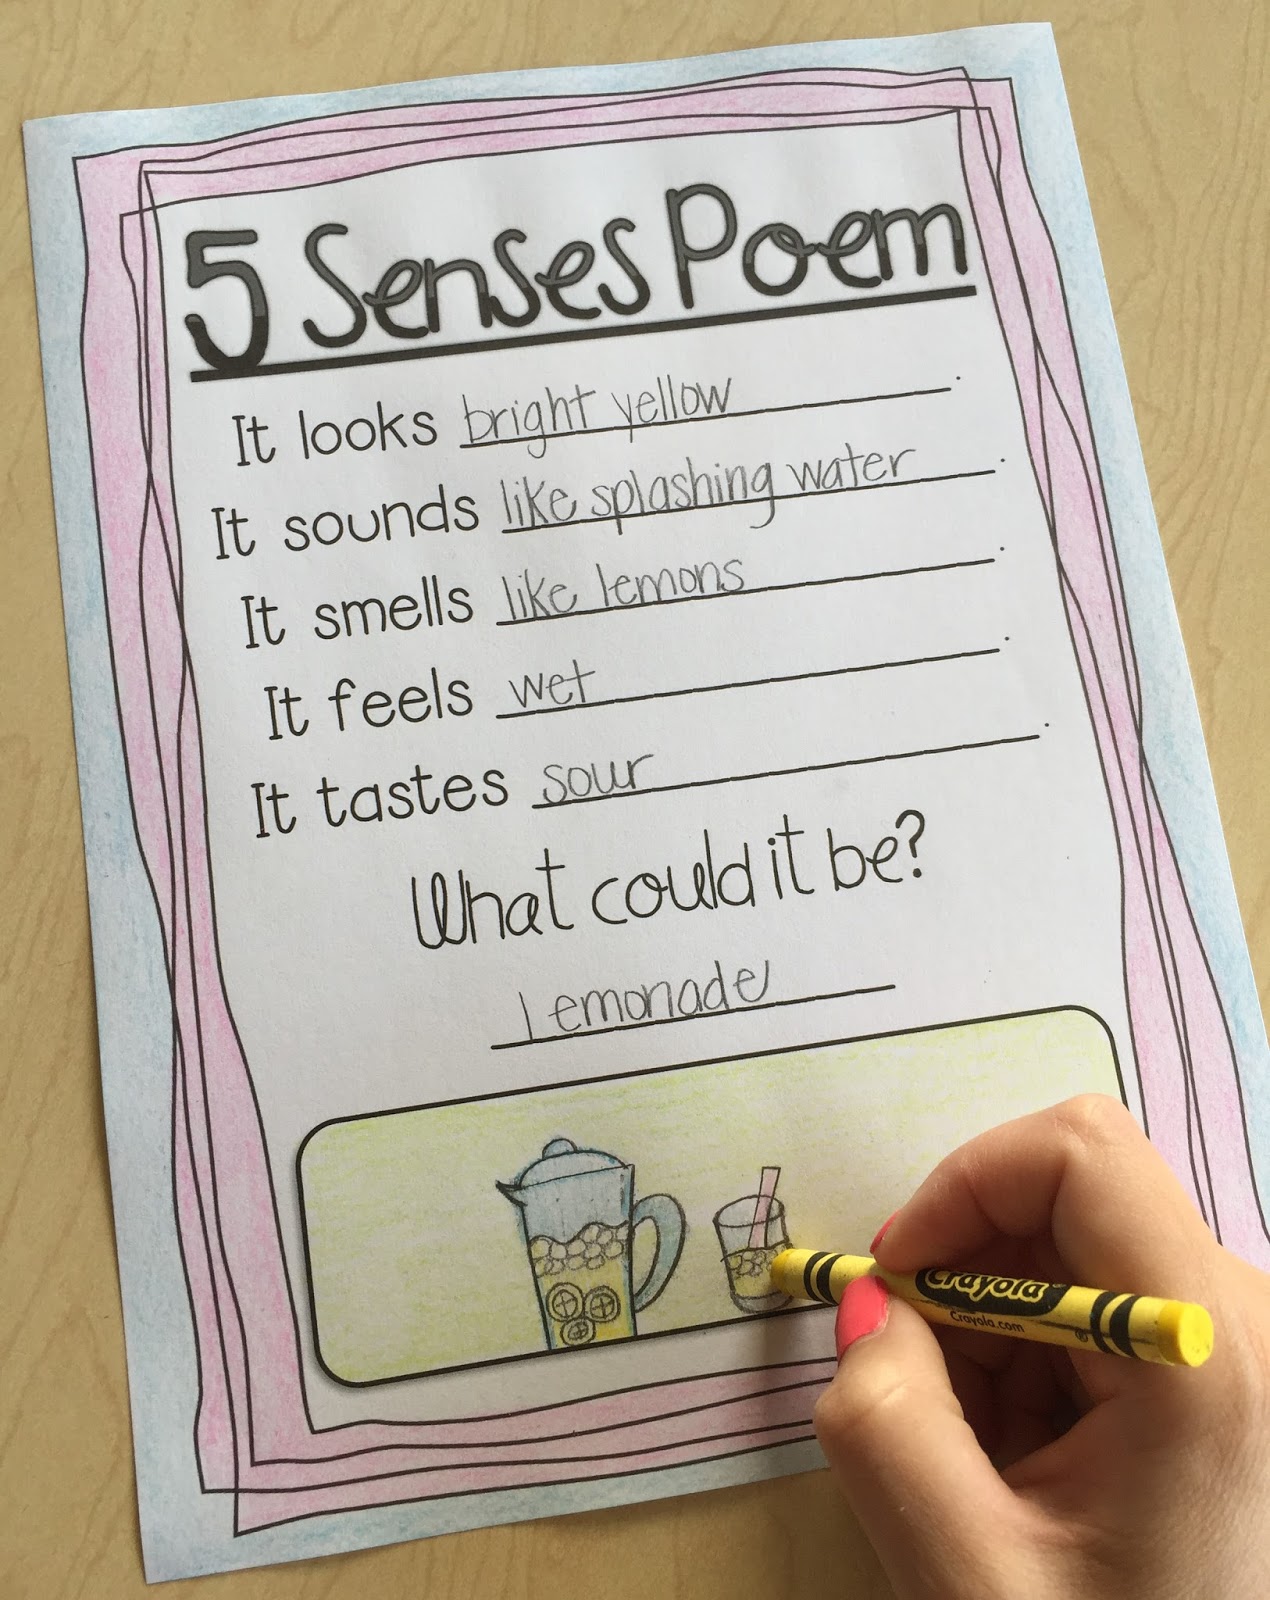 5 Senses Poem
It looks bright yellow.
It sounds like splashing water.
It smells like lemons.
It feels wet.
It tastes sour.
What could it be?
Lemonade
Crayola
Crayola.com ®